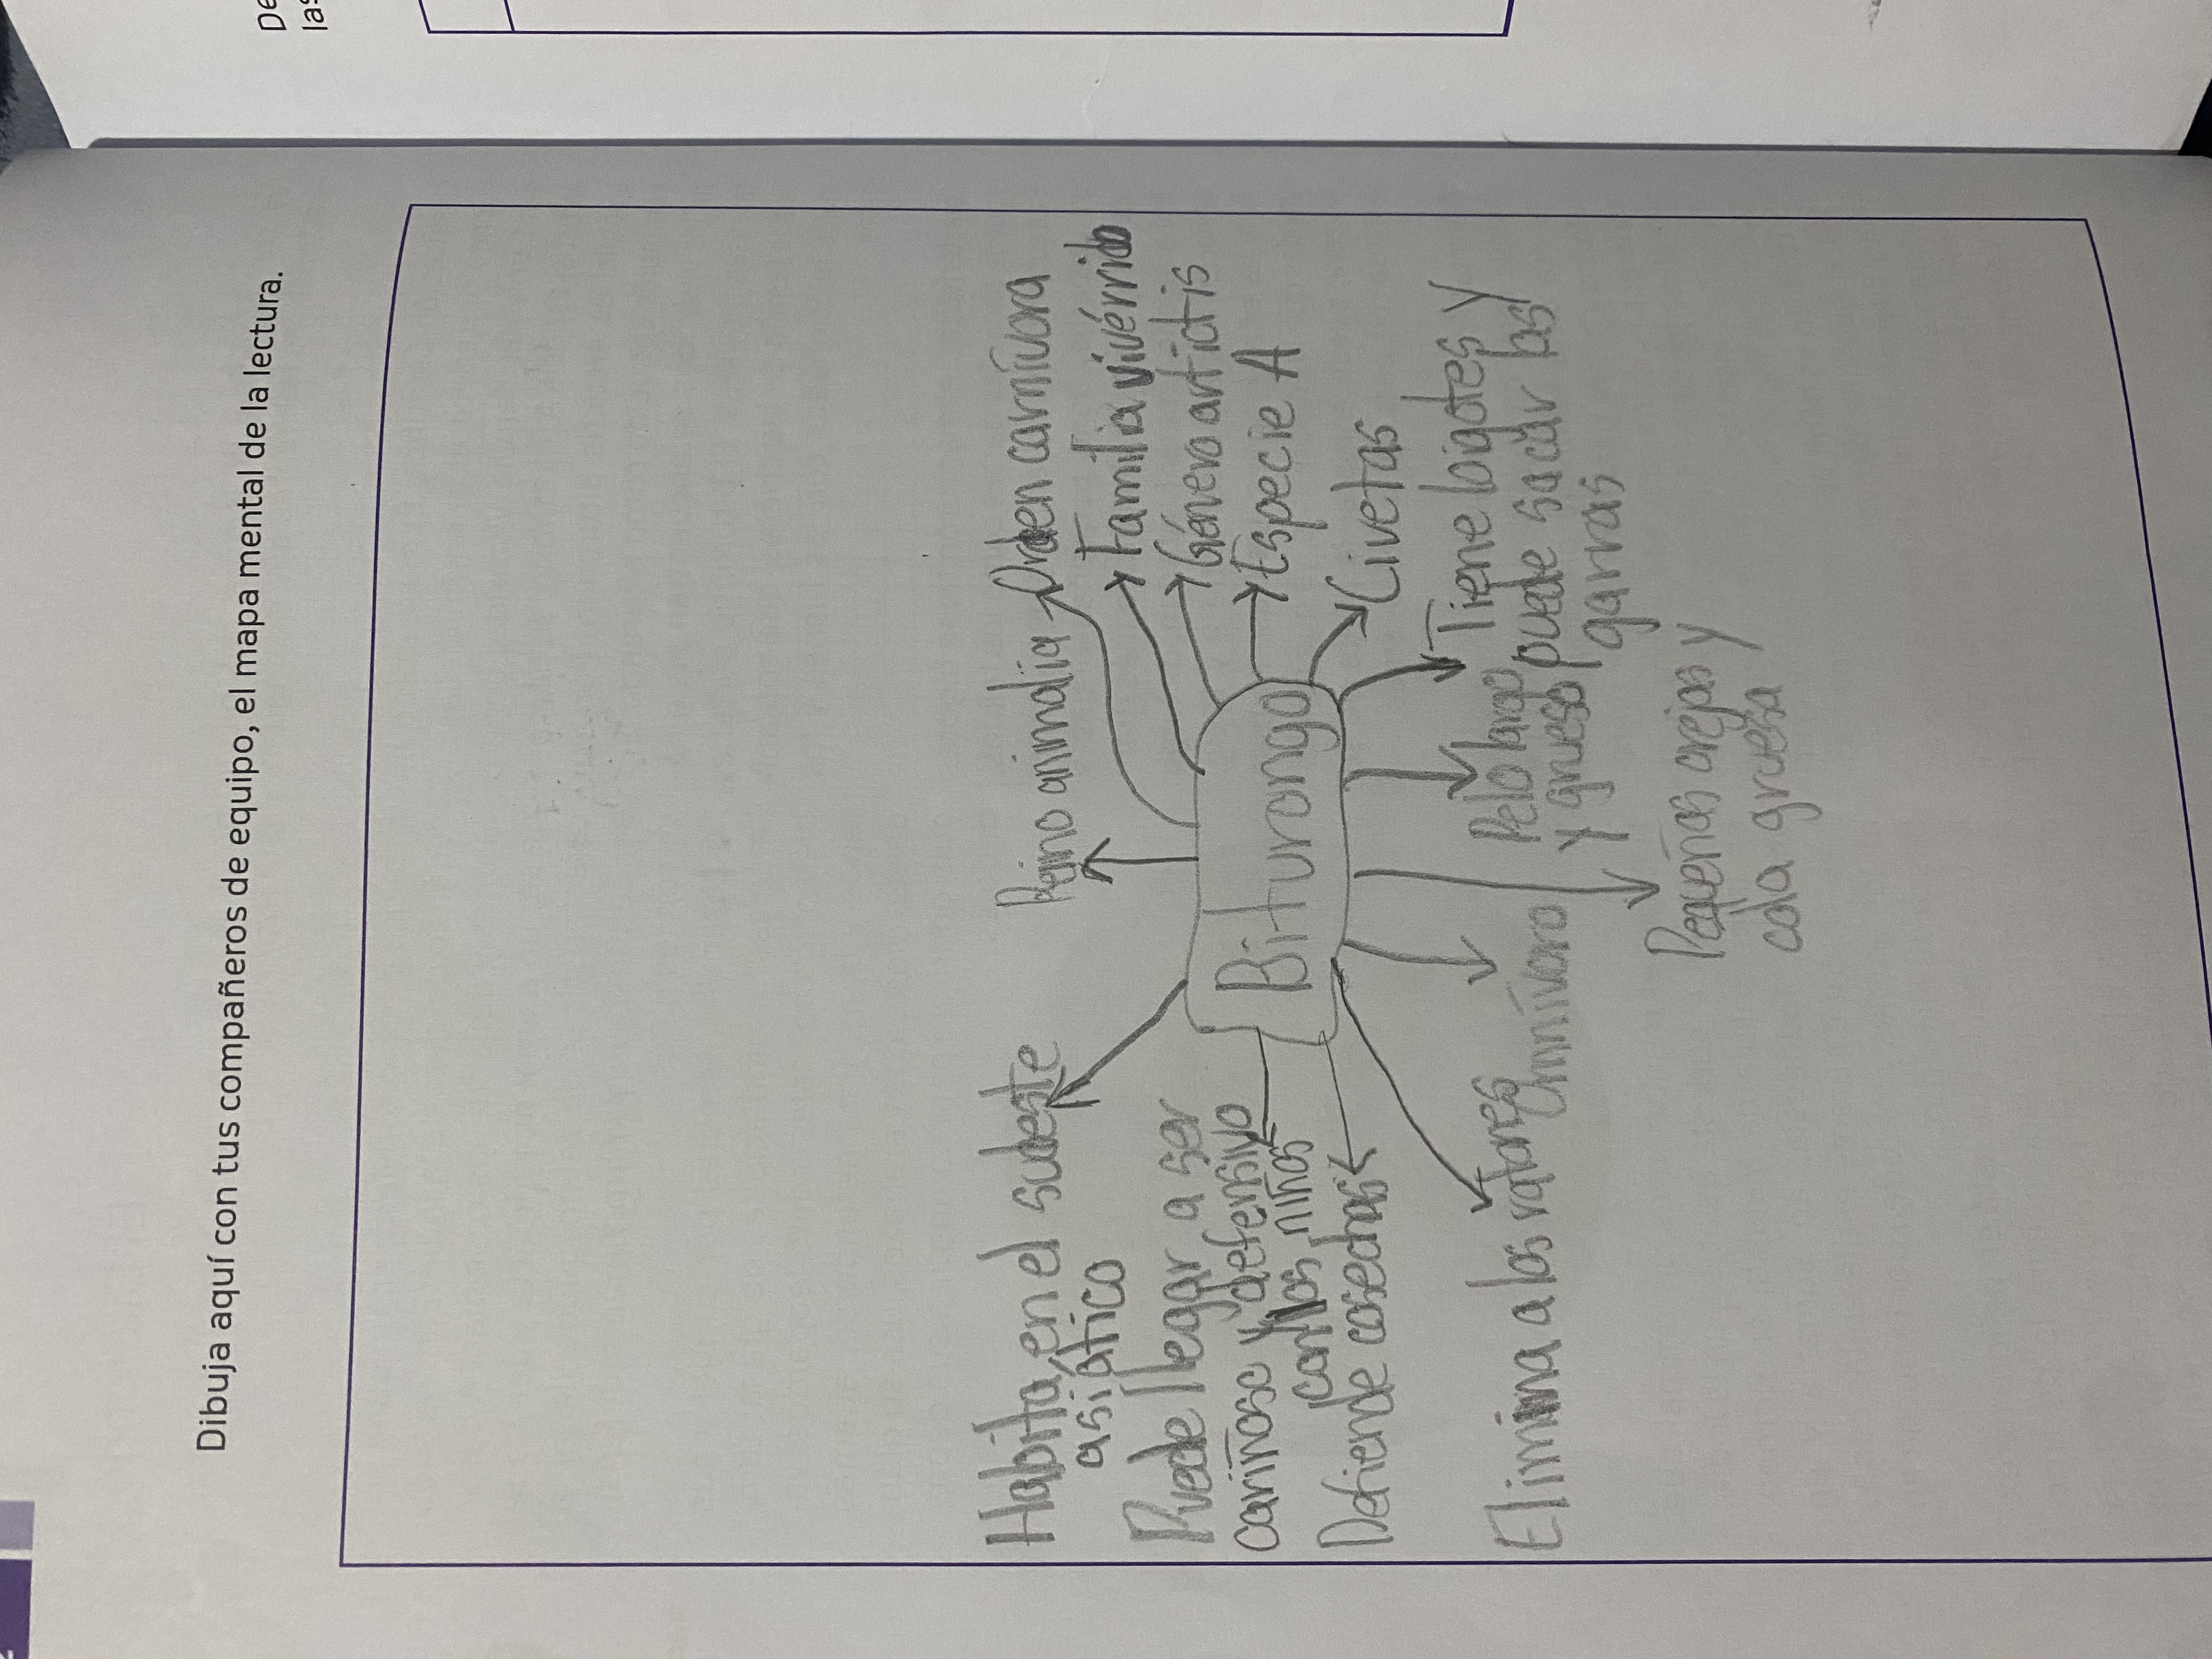 Dibuja aquí con tus compañeros de equipo, el mapa mental de la lectura.
Habita en el sudeste
asiático
Reino animalia
Orden carnívora
Familia vivérrido
Género artictis
Especie A
Civetas
Tiene bigotes y
puede sacar las
garras
Pelo largo
y grueso
Pequeñas orejas y
cola gruesa
Omnívoro
Elimina a los
Defiende cosechas
Puede llegar a ser
cariñoso y defensivo
con los niños
Biturongo
De
las